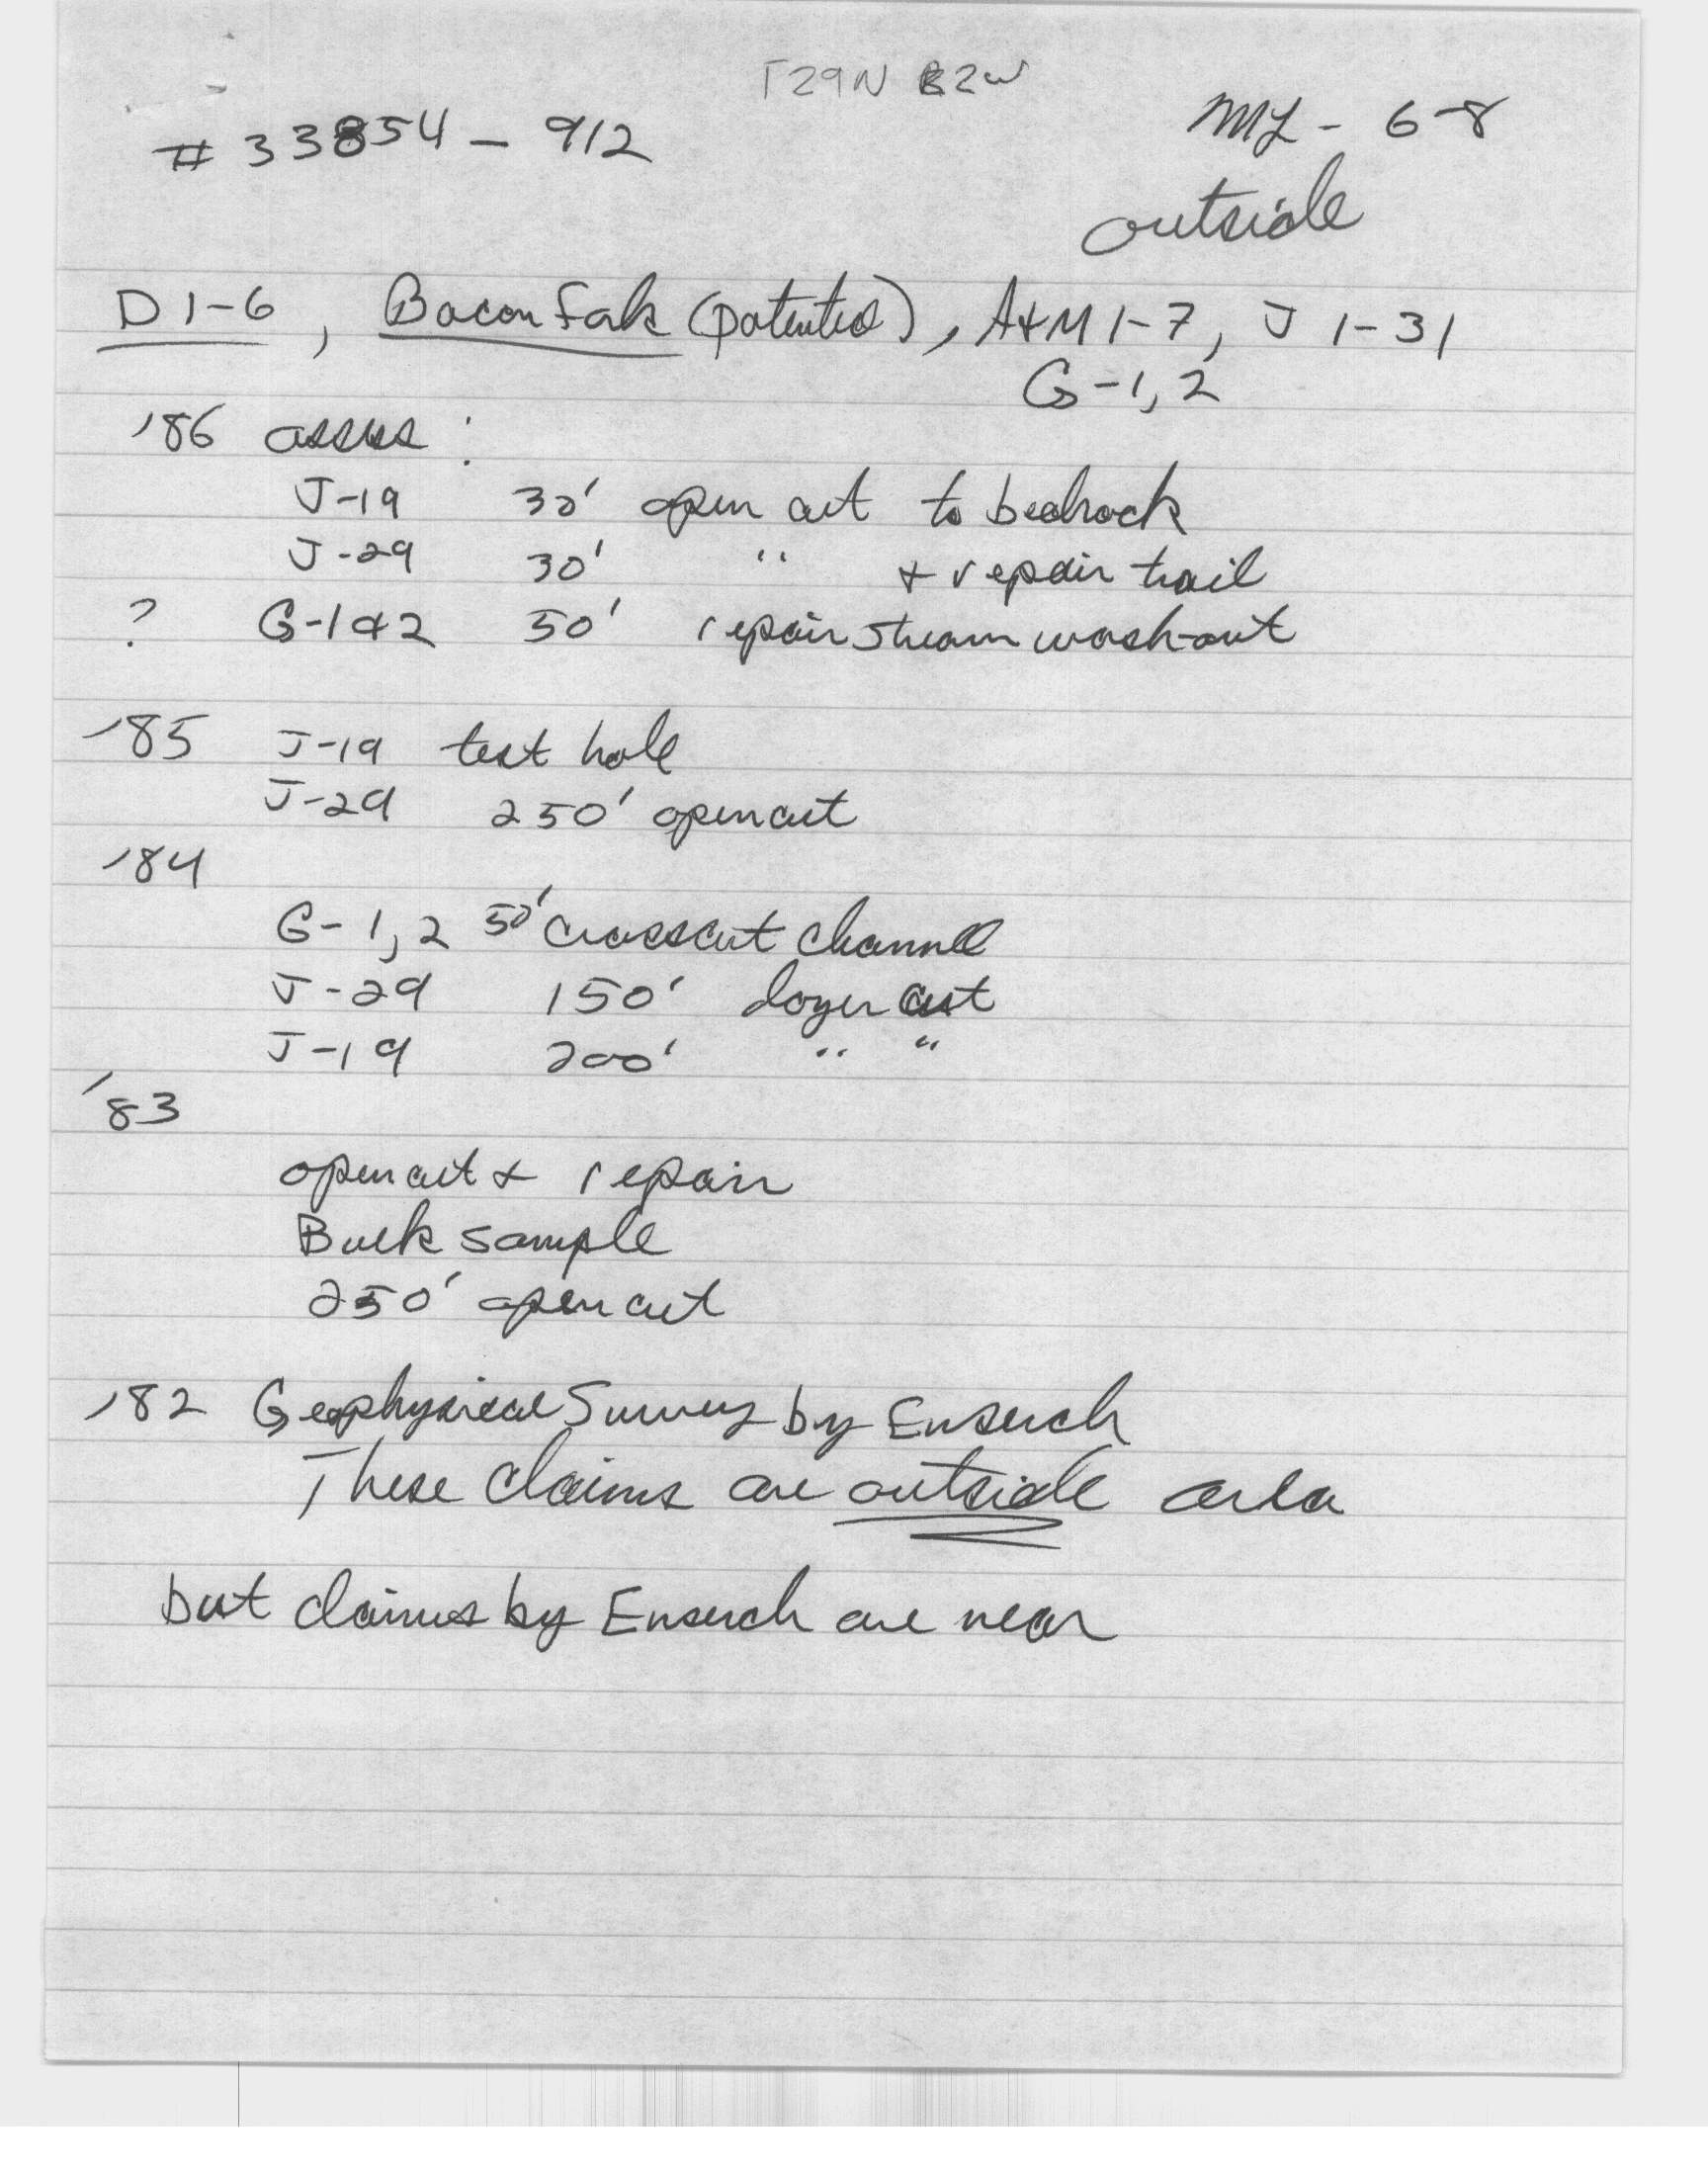 T29N R2W
#33854-912
ML - 6-8
outside
D 1-6, Bacon Fork (patented), A+M 1-7, J 1-31
G-1, 2
'86 assess :
J-19 30' open cut to bedrock
J-29 30' " + repair trail
? G-1&2 50' repair stream wash-out
'85 J-19 test hole
J-29 250' open cut
'84
G-1, 2 50' crosscut channel
J-29 150' dozer cut
J-19 200' " "
'83
open cut + repair
Bulk sample
250' open cut
'82 Geophysical Survey by Enserch
These claims are outside area
but claims by Enserch are near